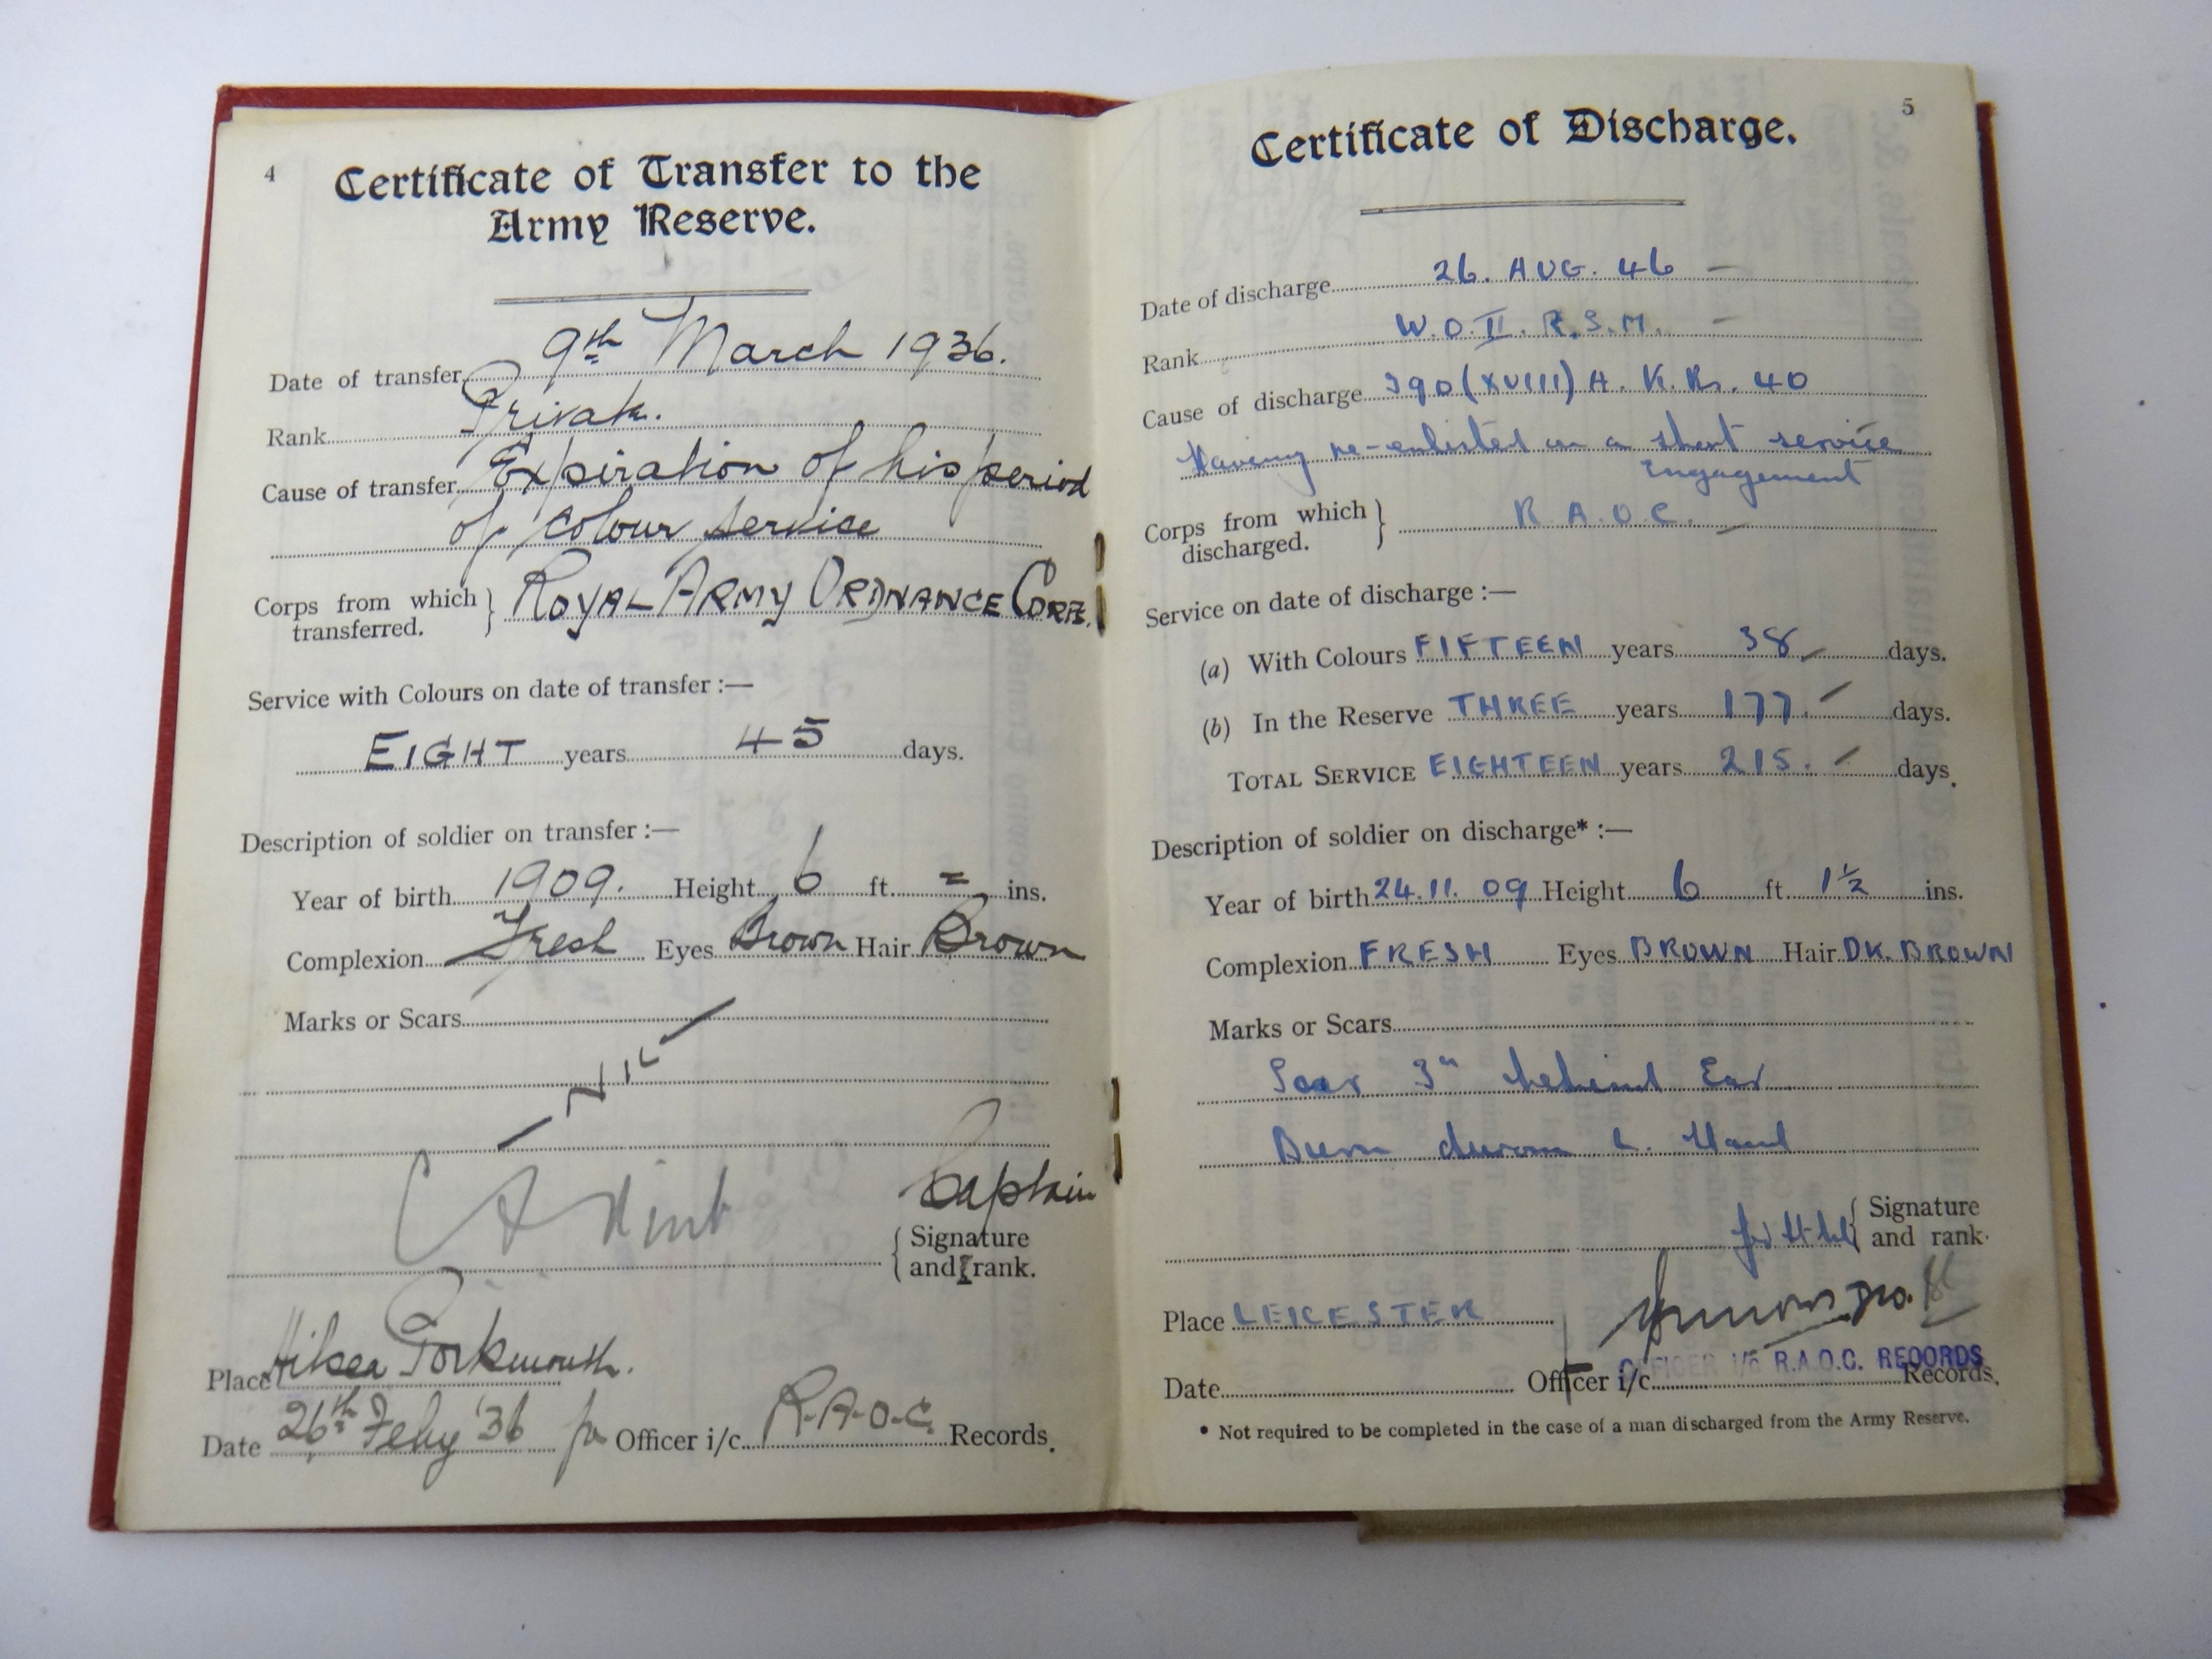 4
Certificate of Transfer to the
Army Reserve.
Date of transfer 9th March 1936.
Rank Private.
Cause of transfer Expiration of his period
of Colour Service
Corps from which transferred. } ROYAL ARMY ORDNANCE CORPS.
Service with Colours on date of transfer :—
EIGHT years 45 days.
Description of soldier on transfer :—
Year of birth 1909. Height 6 ft. = ins.
Complexion Fresh Eyes Brown Hair Brown
Marks or Scars
NIL
Captain
{ Signature
and rank.
Place Hilsea Portsmouth.
Date 26th Feby '36 for Officer i/c R.A.O.C. Records.
5
Certificate of Discharge.
Date of discharge 26. AUG. 46 —
Rank W.O.II. R.S.M. —
Cause of discharge 390 (XVIII) A. K.Rs. 40
Having re-enlisted on a short service
Engagement
Corps from which discharged. } R.A.O.C. —
Service on date of discharge :—
(a) With Colours FIFTEEN years 38 — days.
(b) In the Reserve THREE years 177. — days.
TOTAL SERVICE EIGHTEEN years 215. — days.
Description of soldier on discharge* :—
Year of birth 24.11.09 Height 6 ft. 1½ ins.
Complexion FRESH Eyes BROWN Hair DK. BROWN
Marks or Scars
Scar 3" behind Ear
Burn L. Hand
{ Signature
and rank.
Place LEICESTER
OFFICER I/C R.A.O.C. RECORDS
Date Officer i/c Records.
* Not required to be completed in the case of a man discharged from the Army Reserve.